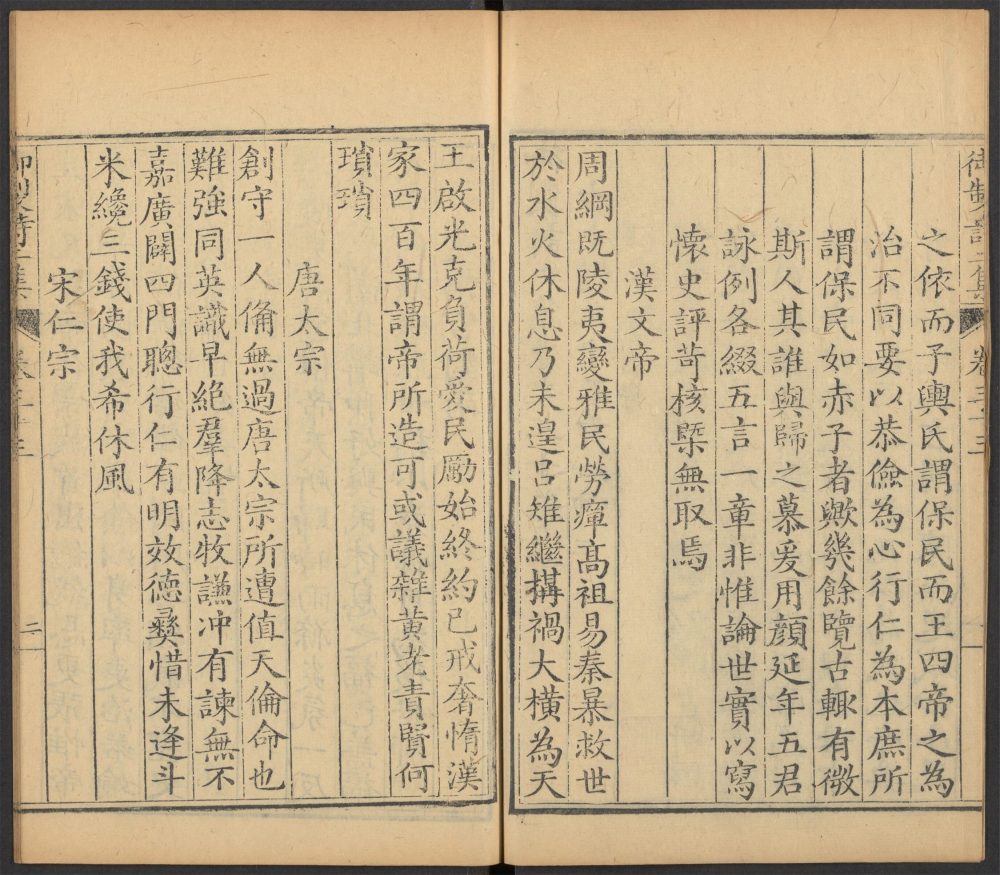 之依而子輿氏謂保民而王四帝之為
治不同要以恭儉為心行仁為本庶所
謂保民如赤子者歟幾餘覽古輙有微
斯人其誰與歸之慕爰用顔延年五君
詠例各綴五言一章非惟論世實以寫
懷史評苛核槩無取焉
漢文帝
周綱既陵夷變雅民勞癉高祖易秦暴救世
於水火休息乃未遑呂雉繼搆禍大橫為天
王啟光克負荷愛民勵始終約己戒奢惰漢
家四百年謂帝所造可或議雜黄老責賢何
瑣瑣
唐太宗
創守一人備無過唐太宗所遭值天倫命也
難強同英識早絶羣降志牧謙冲有諫無不
嘉廣闢四門聰行仁有明效徳彝惜未逢斗
米纔三錢使我希休風
宋仁宗
二